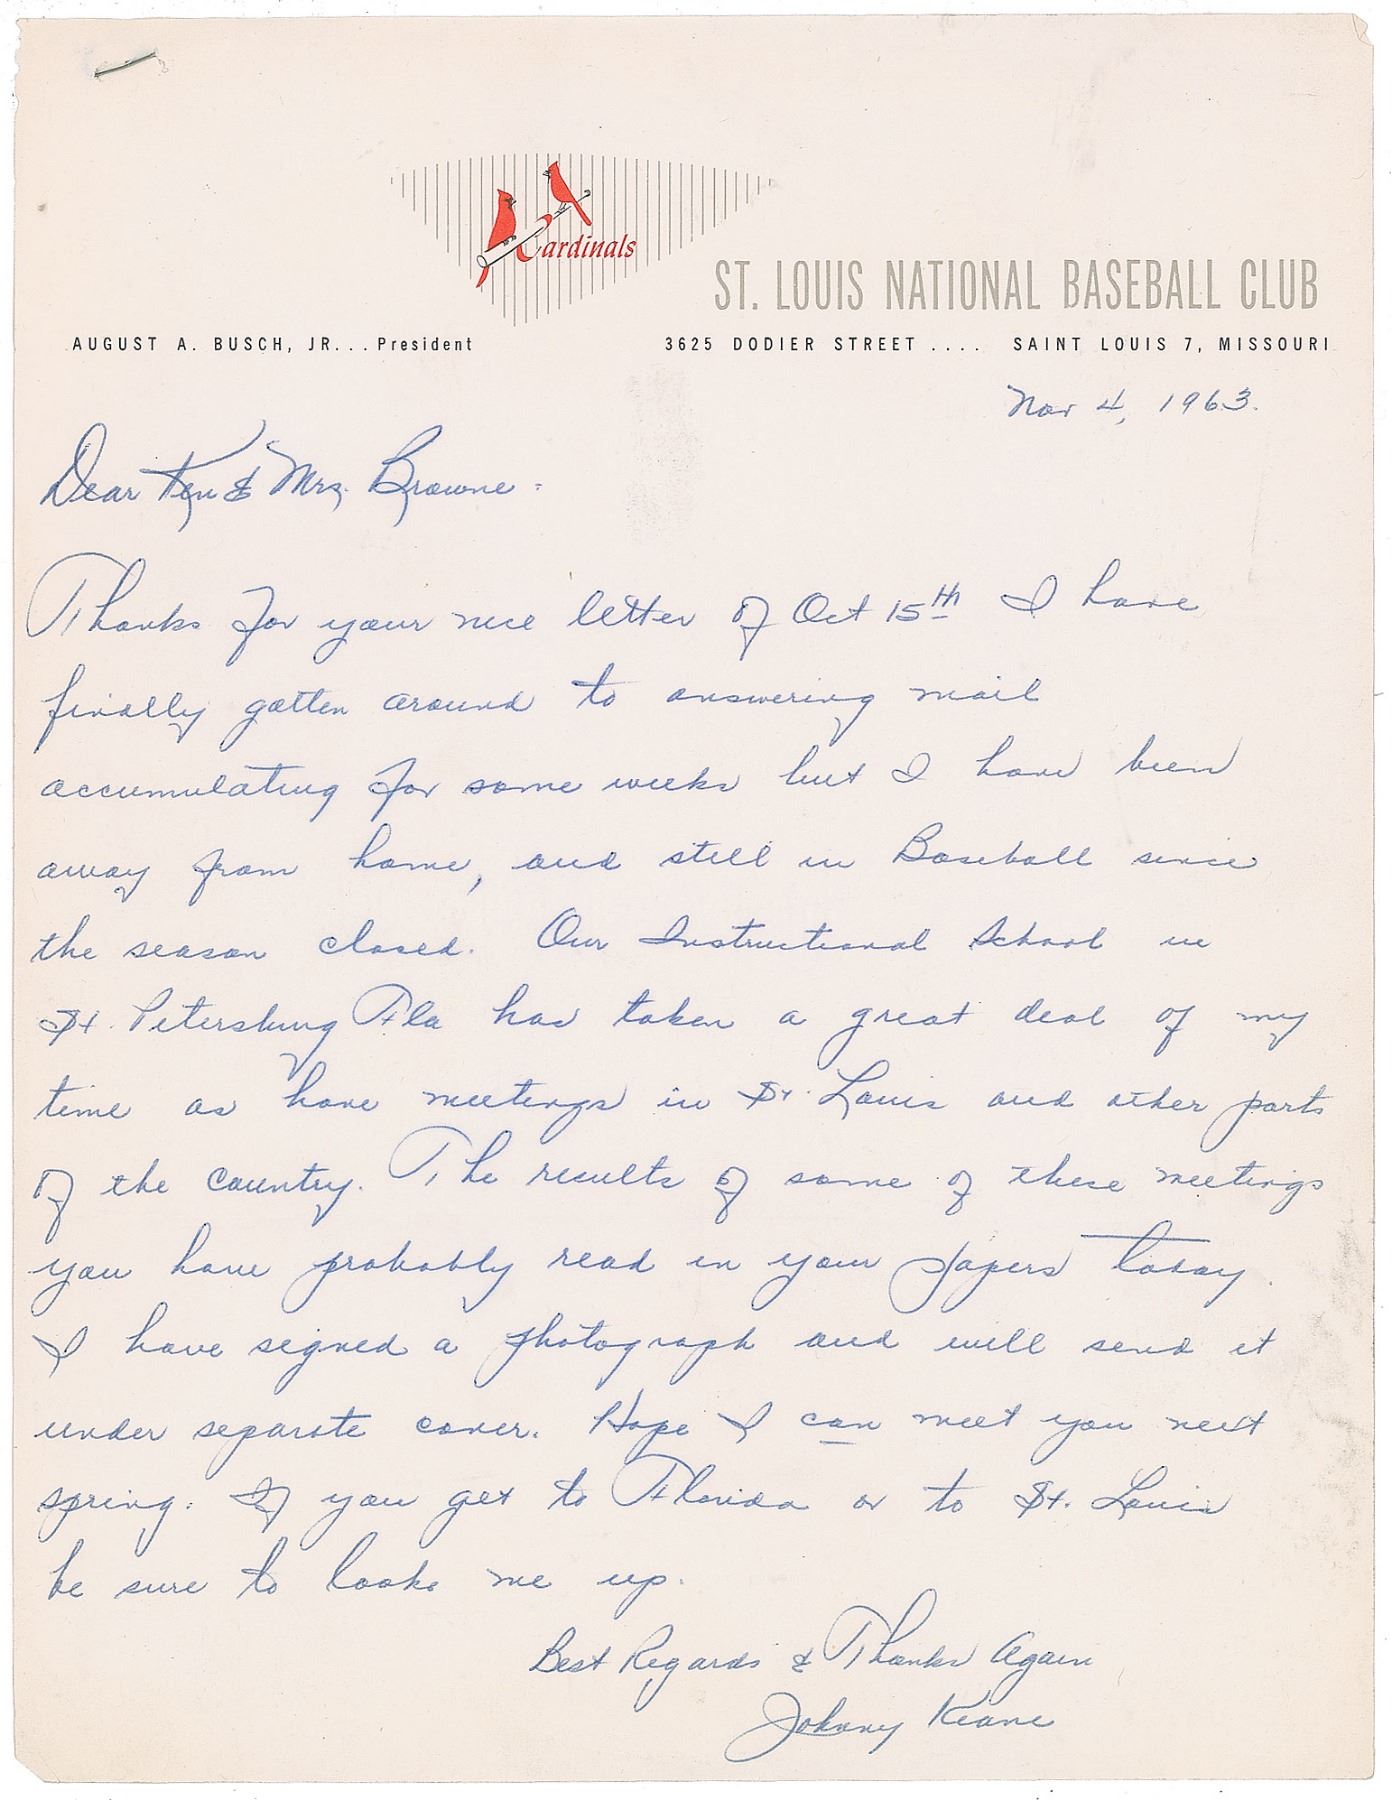 Cardinals
ST. LOUIS NATIONAL BASEBALL CLUB
AUGUST A. BUSCH, JR... President 3625 DODIER STREET .... SAINT LOUIS 7, MISSOURI
Nov 4, 1963.
Dear Ken & Mrs. Browne:
Thanks for your nice letter of Oct 15th I have
finally gotten around to answering mail
accumulating for some weeks but I have been
away from home, and still in Baseball since
the season closed. Our Instructional School in
St. Petersburg Fla has taken a great deal of my
time as have meetings in St. Louis and other parts
of the country. The results of some of these meetings
you have probably read in your papers today.
I have signed a photograph and will send it
under separate cover. Hope I can meet you next
spring. If you get to Florida or to St. Louis
be sure to looks me up.
Best Regards & Thanks Again
Johnny Keane